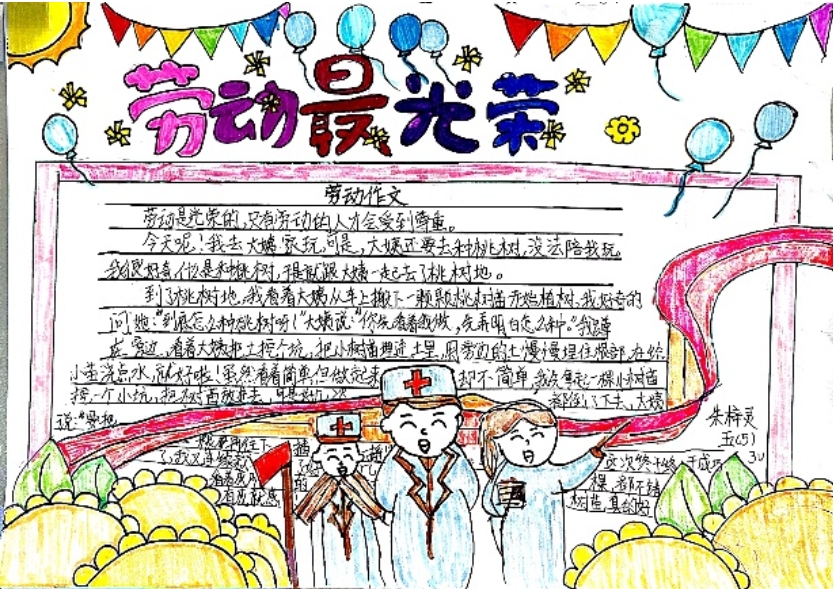 劳动最光荣
劳动作文
劳动是光荣的,只有劳动的人才会受到尊重。
今天呢!我去大姨家玩,可是,大姨还要去种桃树,没法陪我玩。
我很好奇是种桃树,于是就跟大姨一起去了桃树地。
到了桃树地,我看着大姨从车上搬下一颗颗桃树苗开始植树,我好奇的
问她:“到底怎么种桃树呀!”大姨说:“你先看着我做,先弄明白怎么种。”我蹲
在旁边,看着大姨把土挖个坑,把小树苗埋进土里,用旁边的土慢慢埋住根部,在给
小苗浇点水,就好啦!虽然看着简单,但做起来 却不简单,我先拿起一棵小树苗
挖一个小坑,把树苗放进去,可是 都倒了下去,大姨
说:“要把
朱梓灵
五(5)
这次终于成功
棵都不错
树苗真的好